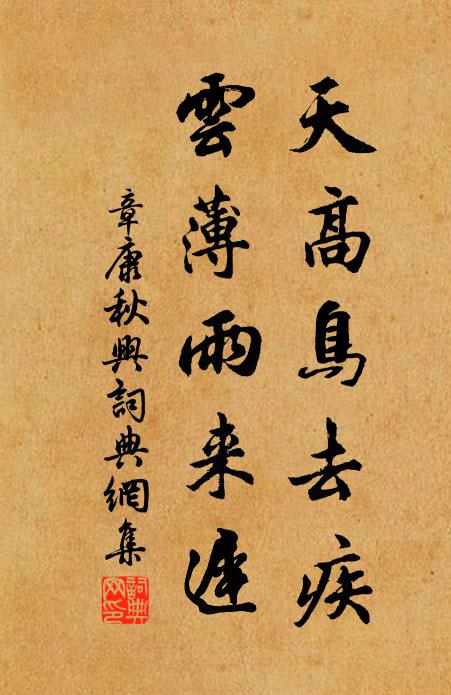 天高鳥去疾
雲薄雨来遲
章康秋興詞典網集
詞典
网印